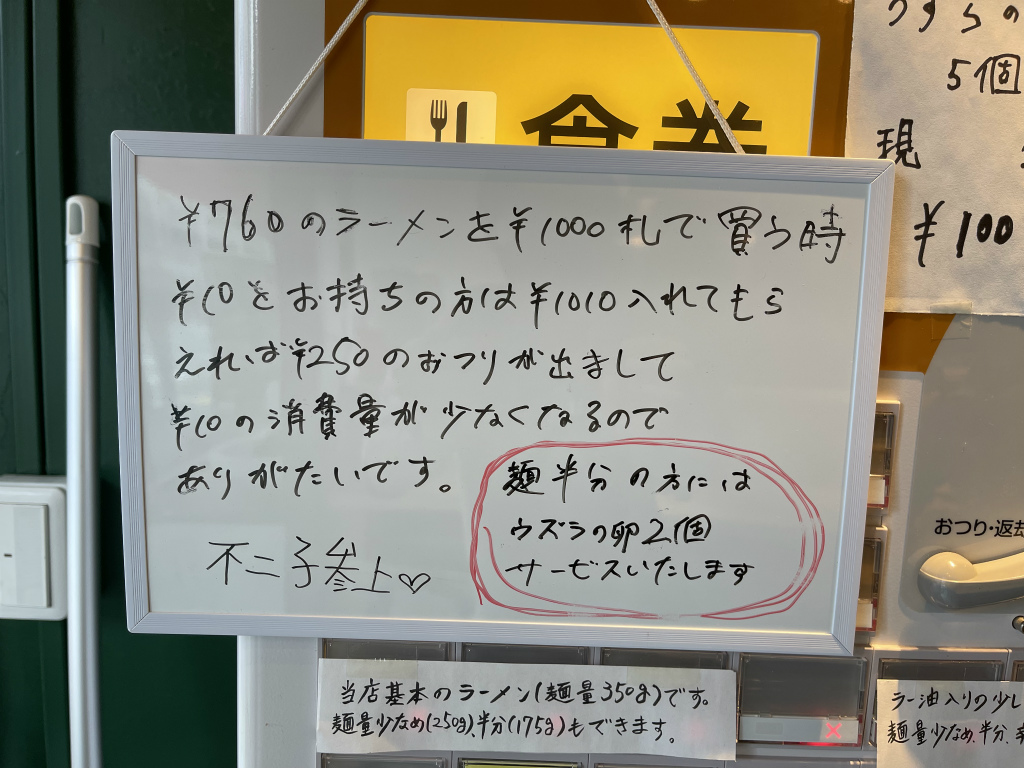 食券
うずらの
5個
現
¥100
¥760のラーメンを¥1000札で買う時
¥10をお持ちの方は¥1010入れてもら
えれば¥250のおつりが出まして
¥10の消費量が少なくなるので
ありがたいです。
麺半分の方には
ウズラの卵2個
サービスいたします
不二子参上♡
おつり・返却
当店基本のラーメン(麺量350g)です。
麺量少なめ(250g)、半分(175g)もできます。
ラー油入りの少し
麺量少なめ、半分、